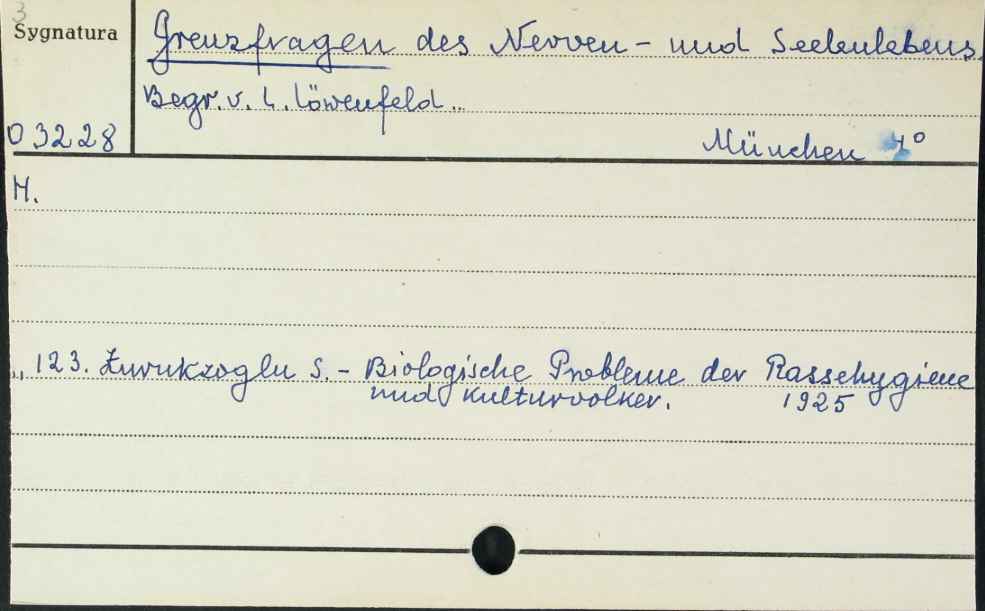 3
Sygnatura
Grenzfragen des Nerven- und Seelenlebens.
Begr. v. L. Löwenfeld..
O 3228
München 4°
H.
„ 123. Zurukzoglu S. - Biologische Probleme der Rassehygiene
und Kulturvölker. 1925